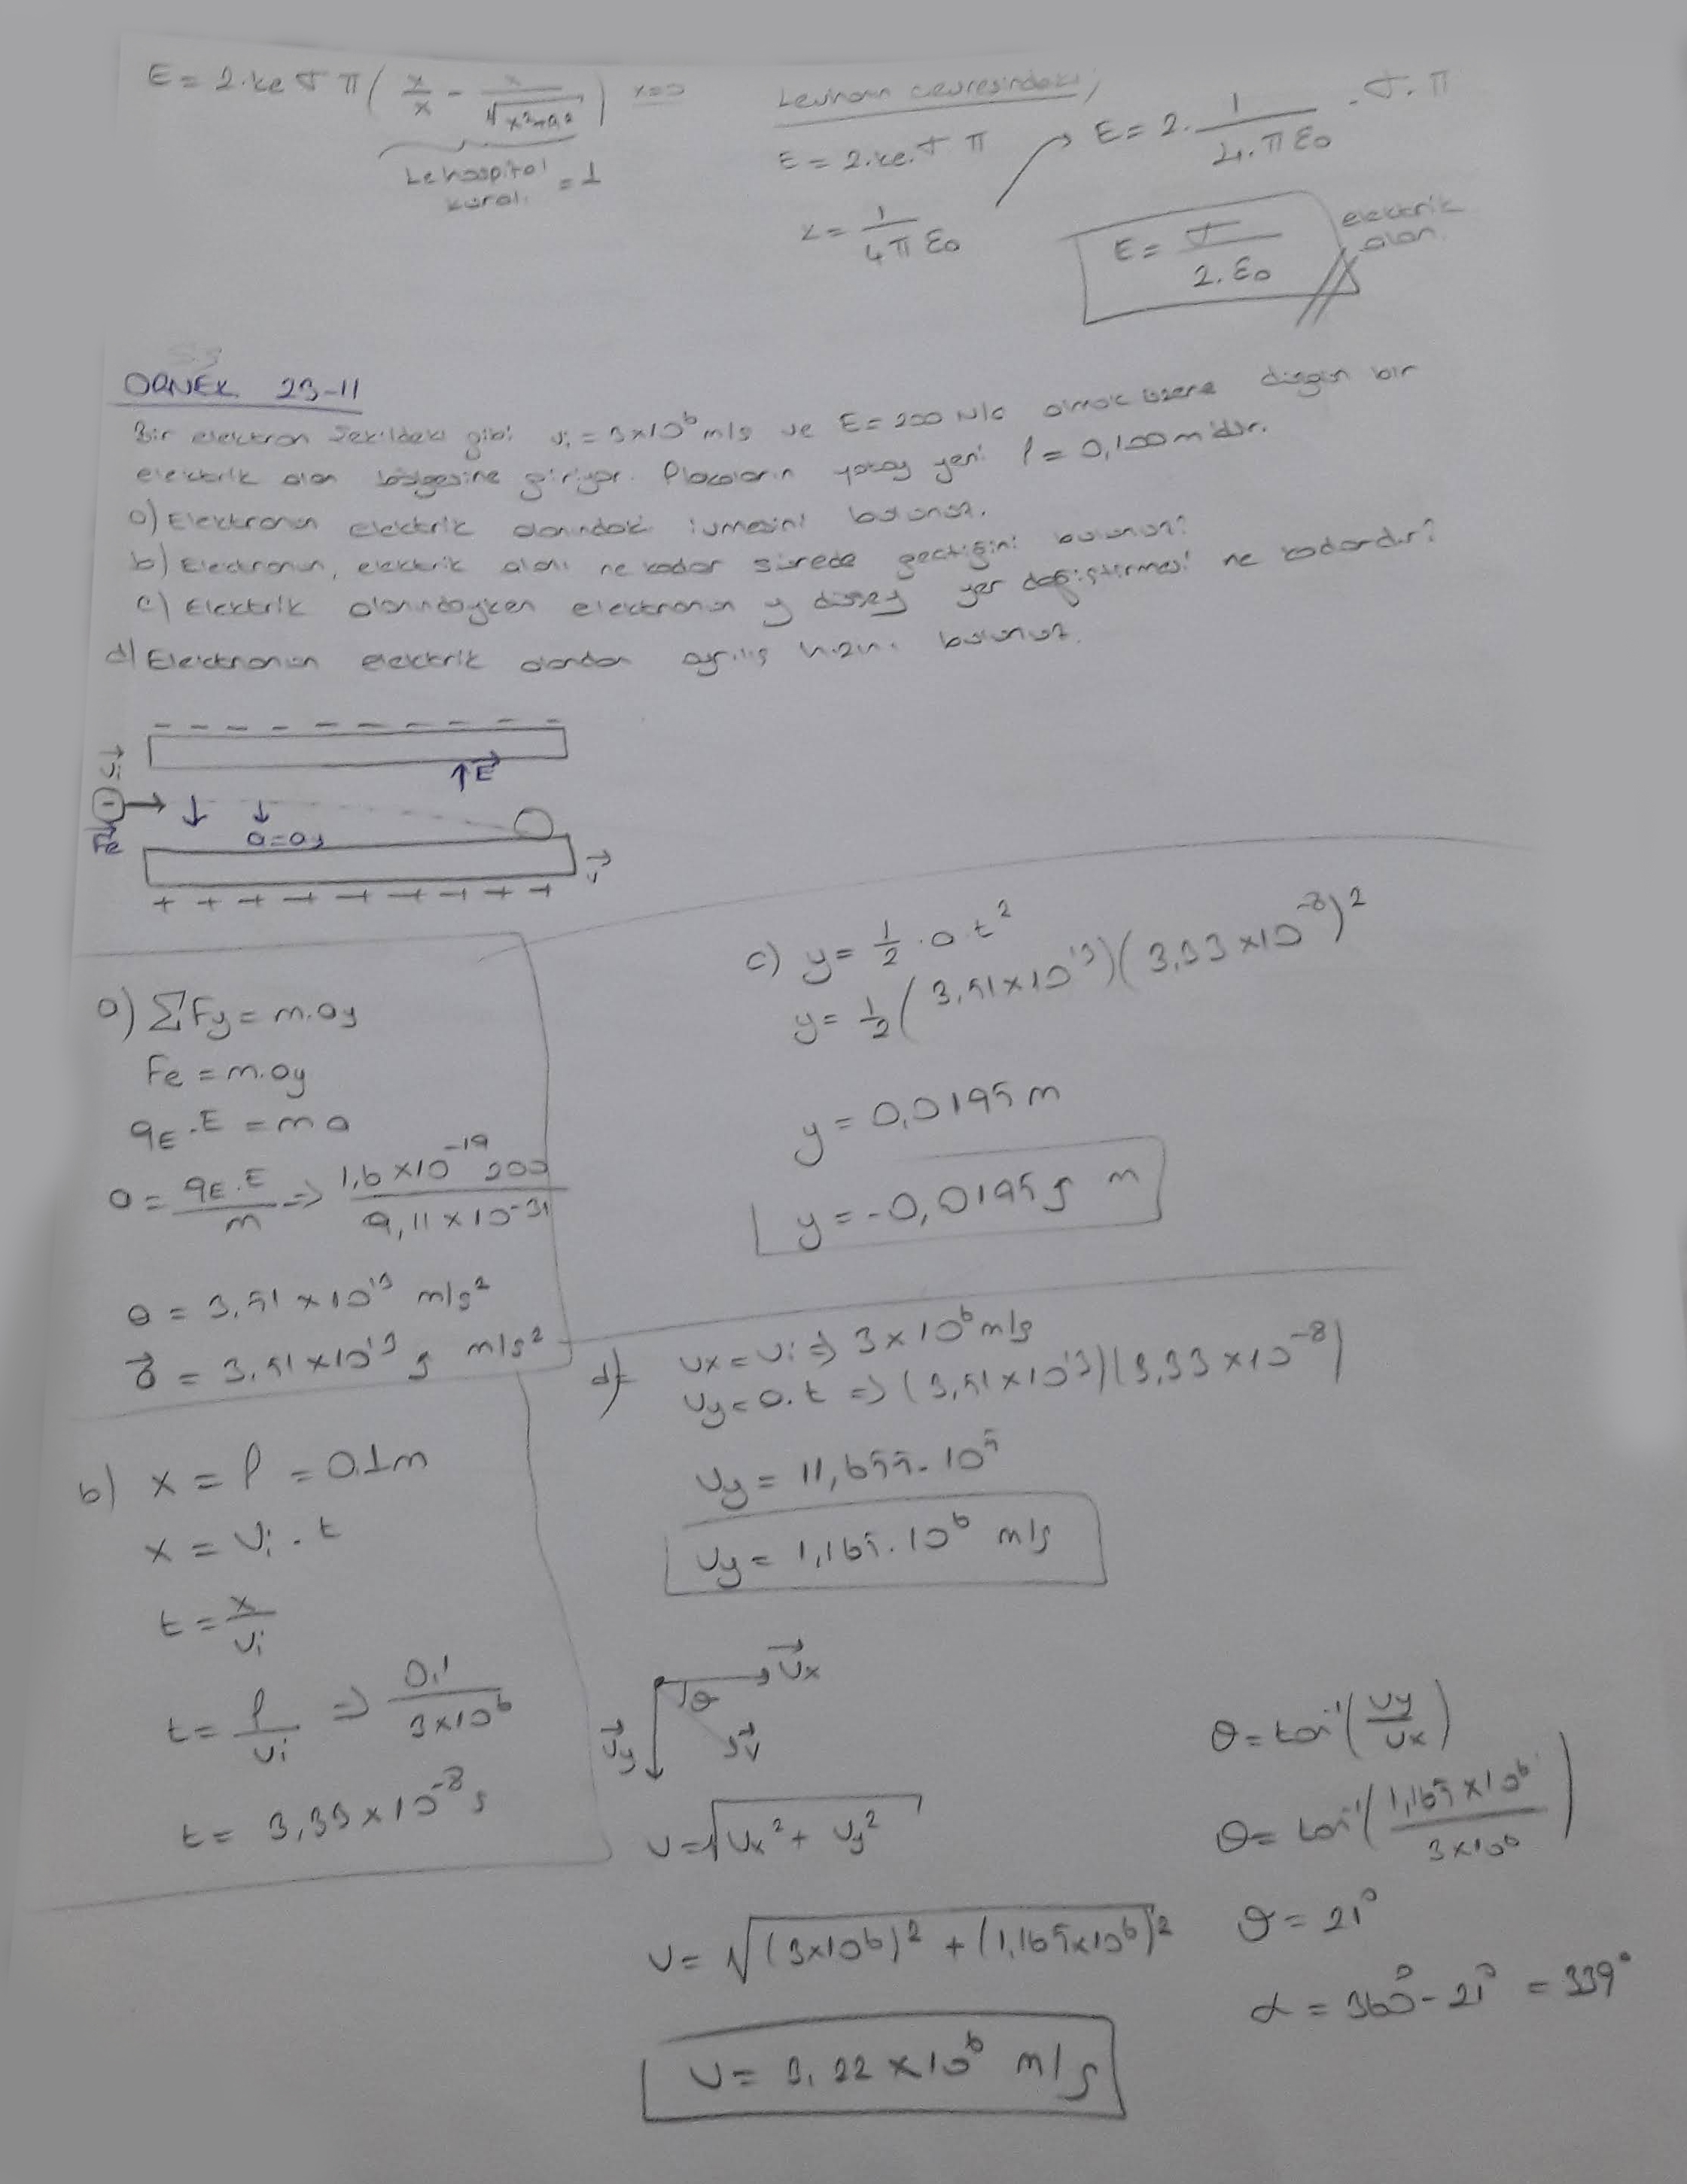 E = 2.ke σ π ( x/x - x/√(x²+a²) ) x=>
Lehospital kuralı = 1
Levhanın çevresindeki;
E = 2.ke.σ π
E = 2. 1/(4.π ε0) . σ. π
k = 1/(4π ε0)
E = σ/(2. ε0)
elektrik alan.
ÖRNEK 23-11
Bir elektron şekildeki gibi vi = 3x10^6 m/s ve E = 200 N/C olmak üzere düzgün bir
elektrik alan bölgesine giriyor. Plakaların yatay yeri l = 0,100 m'dir.
a) Elektronun elektrik alandaki ivmesini bulunuz.
b) Electronun, elektrik alanı ne kadar sürede geçtiğini bulunuz?
c) Elektrik alanındayken electronun y düşey yer değiştirmesi ne kadardır?
d) Elektronun elektrik alandan ayrılış hızını bulunuz.
- - - - - - - - - -
vi
↑E
-
Fe
a=ay
v
+ + + + + + + + +
a) ΣFy = m.ay
Fe = m.ay
qE.E = ma
a = qE.E/m => 1,6 x10^-19 200 / 9,11 x 10^-31
a = 3,51 x 10^13 m/s²
a = 3,51 x10^13 j m/s²
b) x = l = 0,1m
x = vi . t
t = x/vi
t = l/vi => 0,1/3x10^6
t = 3,33 x 10^-8 s
c) y = 1/2 . a.t²
y = 1/2 (3,51x10^13)(3,33 x10^-8)²
y = 0,0195 m
y = -0,0195 j m
d) vx = vi => 3 x 10^6 m/s
vy = a.t => (3,51x10^13)(3,33 x10^-8)
vy = 11,655. 10^5
vy = 1,165. 10^6 m/s
vx
θ
vy
v
v = √(vx² + vy²)
v = √((3x10^6)² + (1,165x10^6)²)
v = 3,22 x 10^6 m/s
θ = tan^-1 (vy/vx)
θ = tan^-1 (1,165 x10^6 / 3x10^6)
θ = 21°
α = 360° - 21° = 339°